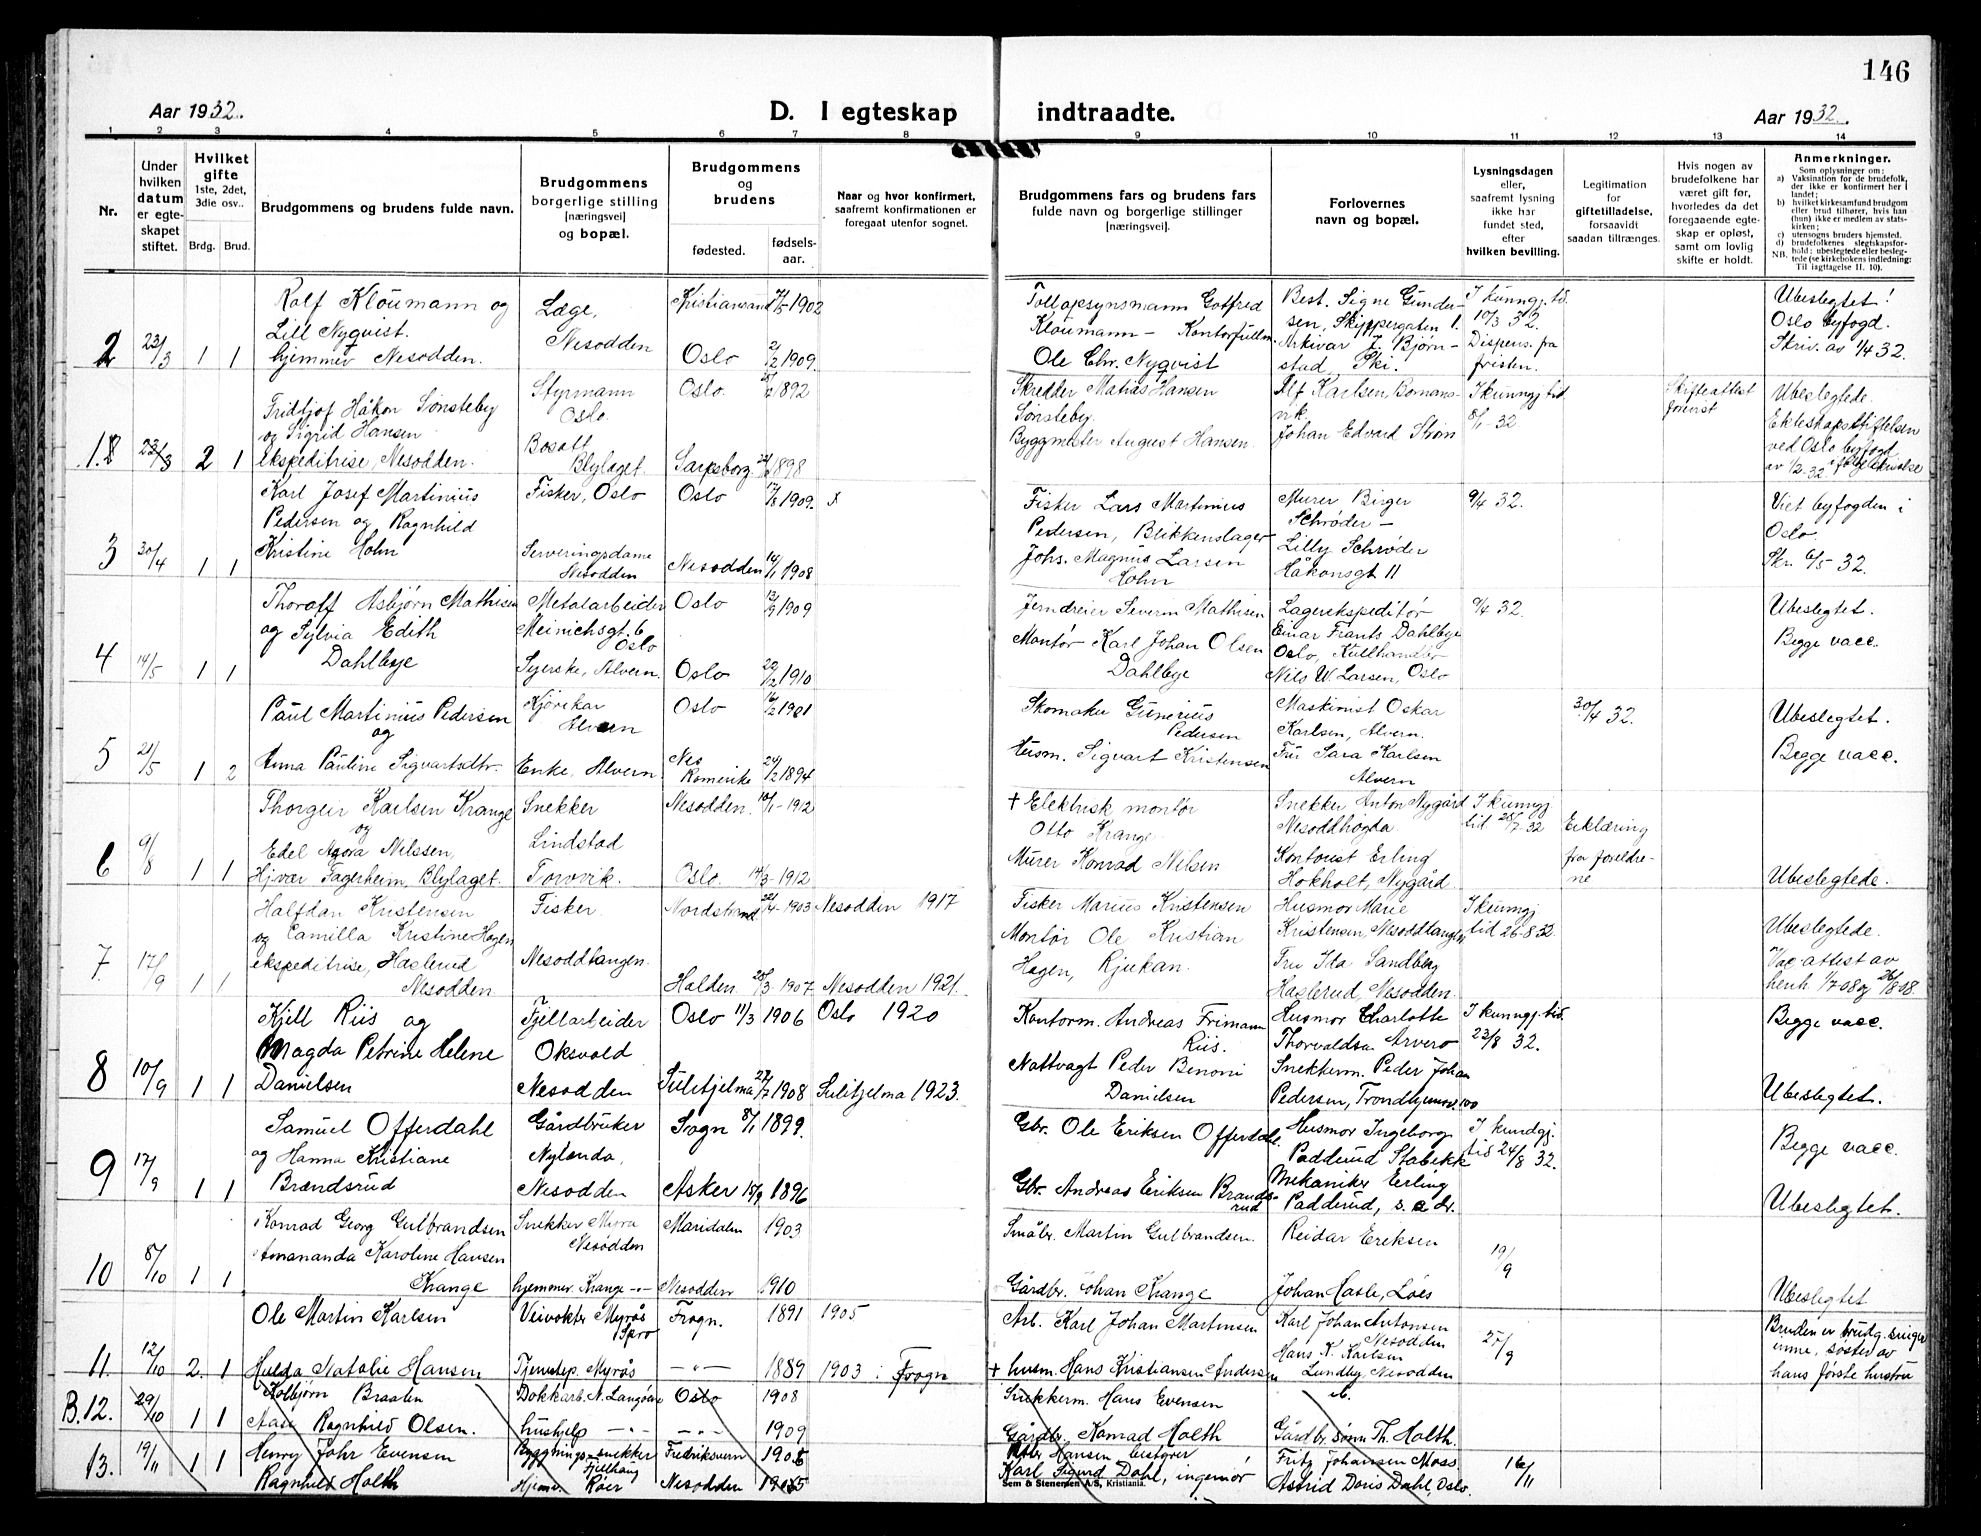 146
Aar 1932. D. I egteskap indtraadte. Aar 1932.
1 2 3 4 5 6 7 8 9 10 11 12 13 14
Nr.
Under hvilken datum er egteskapet stiftet.
Hvilket gifte 1ste, 2det, 3die osv..
Brdg. Brud.
Brudgommens og brudens fulde navn.
Brudgommens borgerlige stilling [næringsvei] og bopæl.
Brudgommens og brudens
fødested. fødselsaar.
Naar og hvor konfirmert, saafremt konfirmationen er foregaat utenfor sognet.
Brudgommens fars og brudens fars fulde navn og borgerlige stillinger [næringsvei].
Forlovernes navn og bopæl.
Lysningsdagen eller, saafremt lysning ikke har fundet sted, efter hvilken bevilling.
Legitimation for giftetilladelse, forsaavidt saadan tiltrænges.
Hvis nogen av brudefolkene har været gift før, hvorledes da det foregaaende egteskap er opløst, samt om lovlig skifte er holdt.
Anmerkninger.
Som oplysninger om:
a) Vaksination for de brudefolk, der ikke er konfirmert her i landet;
b) hvilket kirkesamfund brudgom eller brud tilhører, hvis han (hun) ikke er medlem av statskirken;
c) utensogns bruders hjemsted.
d) brudefolkenes slegtskapsforhold; ubeslegtede eller beslegtede (se kirkebokens indledning: Til iagttagelse II. 10).
NB.
2 23/3 1 1
Rolf Kloumann og
Lill Nyqvist.
hjemmev Nesodden.
Læge,
Nesodden
Kristiansand 1902
Oslo 2/2 1909.
Tollopsynsmann Gotfred
Kloumann - Kontorfullm.
Ole Chr. Nyqvist
Best. Signe Gundersen, Skippergaten 1.
Arkivar J. Bjørnstad, Ski.
I kunngj. td.
10/3 32.
Dispens. fra
fristen.
Ubeslegtet!
Oslo byfogd.
Skriv. av 1/4 32.
23/3 2 1
Fridtjof Håkon Sønsteby
og Sigrid Hansen
ekspeditrise, Nesodden.
Styrmann
Oslo.
Bosatt
Blylaget.
Oslo. 1892
Sarpsborg 1898
Skredder Matias Hansen
Sønsteby.
Byggmester August Hansen.
Alf Karlsen Bomansvik.
Johan Edvard Strøm
I kunngj. tid
8/1-32
Skifteattest
forevist
Ubeslegtede.
Ekteskapsstiftelsen
ved Oslo byfogd
3 30/4 1 1
Karl Josef Martinius
Pedersen og Ragnhild
Kristine Hohn
Fisker, Oslo
Serveringsdame
Nesodden
Oslo 1909. x
Nesodden 14/1 1908
Fisker Lars Martinius
Pedersen, Blikkenslager
Johs. Magnus Larsen
Hohn
Murer Birger
Schrøder -
Lilly Schrøder
Håkonsgt 11
9/4 32.
Viet byfogden i
Oslo.
Skr. 6/5 32.
4 14/5 1 1
Thoralf Asbjørn Mathisen
og Sylvia Edith
Dahlbye
Metalarbeider
Meinichsgt. 6
Oslo
Syerske, Alvern.
Oslo 13/9 1909
Oslo 22/2 1910
Jerndreier Severin Mathisen
Montør Karl Johan Olsen
Dahlbye
Lagerekspeditør
Einar Frants Dahlbye
Oslo, Kullhandler
Nils W. Larsen, Oslo
9/4 32.
Ubeslegtet.
Begge vacc.
5 21/5 1 2
Paul Martinius Pedersen
og
Anna Pauline Sigvartsdtr.
Kjøvikar
Alvern
Enke, Alvern
Oslo 16/2 1901
Nes
Romerike 24/2 1894
Skomaker Gunerius
Pedersen
Husm. Sigvart Kristensen
Maskinist Oskar
Karlsen, Alvern.
Fru Sara Karlsen
Alvern
30/4 32.
Ubeslegtet.
Begge vacc.
6 9/8 1 1
Thorgeir Karlsen Krange
og
Edel Agora Nilssen,
Hjvær Fagerheim, Blylaget.
Snekker
Lindstad
Torvvik.
Nesodden. 10/1-1912
Oslo. 14/3-1912
+ Elektrisk montør
Otto Krange.
Murer Konrad Nilsen
Snekker Anton Nygård
Nesoddhøgda.
Kontorist Erling
Hokholt, Nygård
I kunngj
tid 28/7-32
Erklæring
fra foreldrene
Ubeslegtede.
7. 17/9 1 1
Halfdan Kristensen
og Camilla Kristine Hagen
ekspeditrise, Haslerud
Nesodden
Fisker
Nesoddtangen.
Nordstrand 22/4-1903 Nesodden 1917
Halden. 28/3-1907 Nesodden 1921.
Fisker Marius Kristensen
Montør Ole Kristian
Hagen, Rjukan.
Husmor Marie
Kristensen, Nesoddtangen
Fru Ida Sandberg
Haslerud, Nesodden.
I kunngj
tid 26-8 32.
Ubeslegtede.
Vac. attest av
henh. 1/7 08 og 26/8 08.
8 10/9 1 1
Kjell Riis og
Magda Petrine Helene
Danielsen
Fjellarbeider
Oksvold
Nesodden
Oslo 11/3 1906 Oslo 1920
Sulitjelma 27/7 1908 Sulitjelma 1923.
Kontorm. Andreas Frimann
Riis.
Nattvagt Peder Benoni
Danielsen
Husmor Charlotte
Thorvaldsen Arvero
Snekkerm. Peder Johan
Pedersen, Trondhjemsv. 100
I kunngj. tid.
23/8 32.
Begge vacc.
Ubeslegtet.
9 17/9 1 1
Samuel Offerdahl
og Hanna Kristiane
Brændsrud
Gårdbruker
Nylenda,
Nesodden
Sogn 8/1 1899.
Asker 15/9 1896
Gbr. Ole Eriksen Offerdahl.
Gbr. Andreas Eriksen Brændsrud
Husmor Ingeborg
Padderud Stabekk
Mekaniker Erling
Padderud, s. a. dr.
I kundgj.
tid 24/8 32.
Begge vacc.
Ubeslegtet.
10 8/10 1 1
Konrad Georg Gulbrandsen
Amananda Karoline Hansen
Krange
Snekker Myra
Nesodden
hjemmev. Krange -"-
Maridalen 1903
Nesodden 1910
Småbr. Martin Gulbrandsen.
Gårdbr. Johan Krange
Reidar Eriksen
Johan Hasle, Løes
19/9
Ubeslegtet
11. 12/10 2. 1
Ole Martin Karlsen
Hulda Natalie Hansen
Veivokter Myrås
Spro
Tjenestep. Myrås
Frogn. 1891 1905
-"- 1889 1903 i Frogn
Arb. Karl Johan Martinsen
+ husm. Hans Kristiansen Andersen
Karl Johan Antonsen
Nesodden
Hans K. Karlsen
Lundby, Nesodden
27/9
Bruden er brudg. svigerinne, søster av
hans første hustru
B.12. 29/10 1 1
Kolbjørn Braaten
Aase Ragnhild Olsen.
Dokkarb. N. Langøene
hushjelp -"-
Oslo 1908
-"- 1909
Snekkerm. Hans Evensen
Gårdbr. Konrad Holth
Gårdbr. sønn Th. Holth.
13. 19/11 1 1
Henry Johr Evensen
Ragnhild Holth
Bygningssnekker
Fjellhaug
Hjemmev. Røer
Fredriksvern 1905
Nesodden 1905
Hansen bestyrer
Karl Sigurd Dahl, ingeniør
Fritz Johansen Moss.
Astrid Doris Dahl, Oslo.
16/11
Sem & Stenersen A/S, Kristiania.